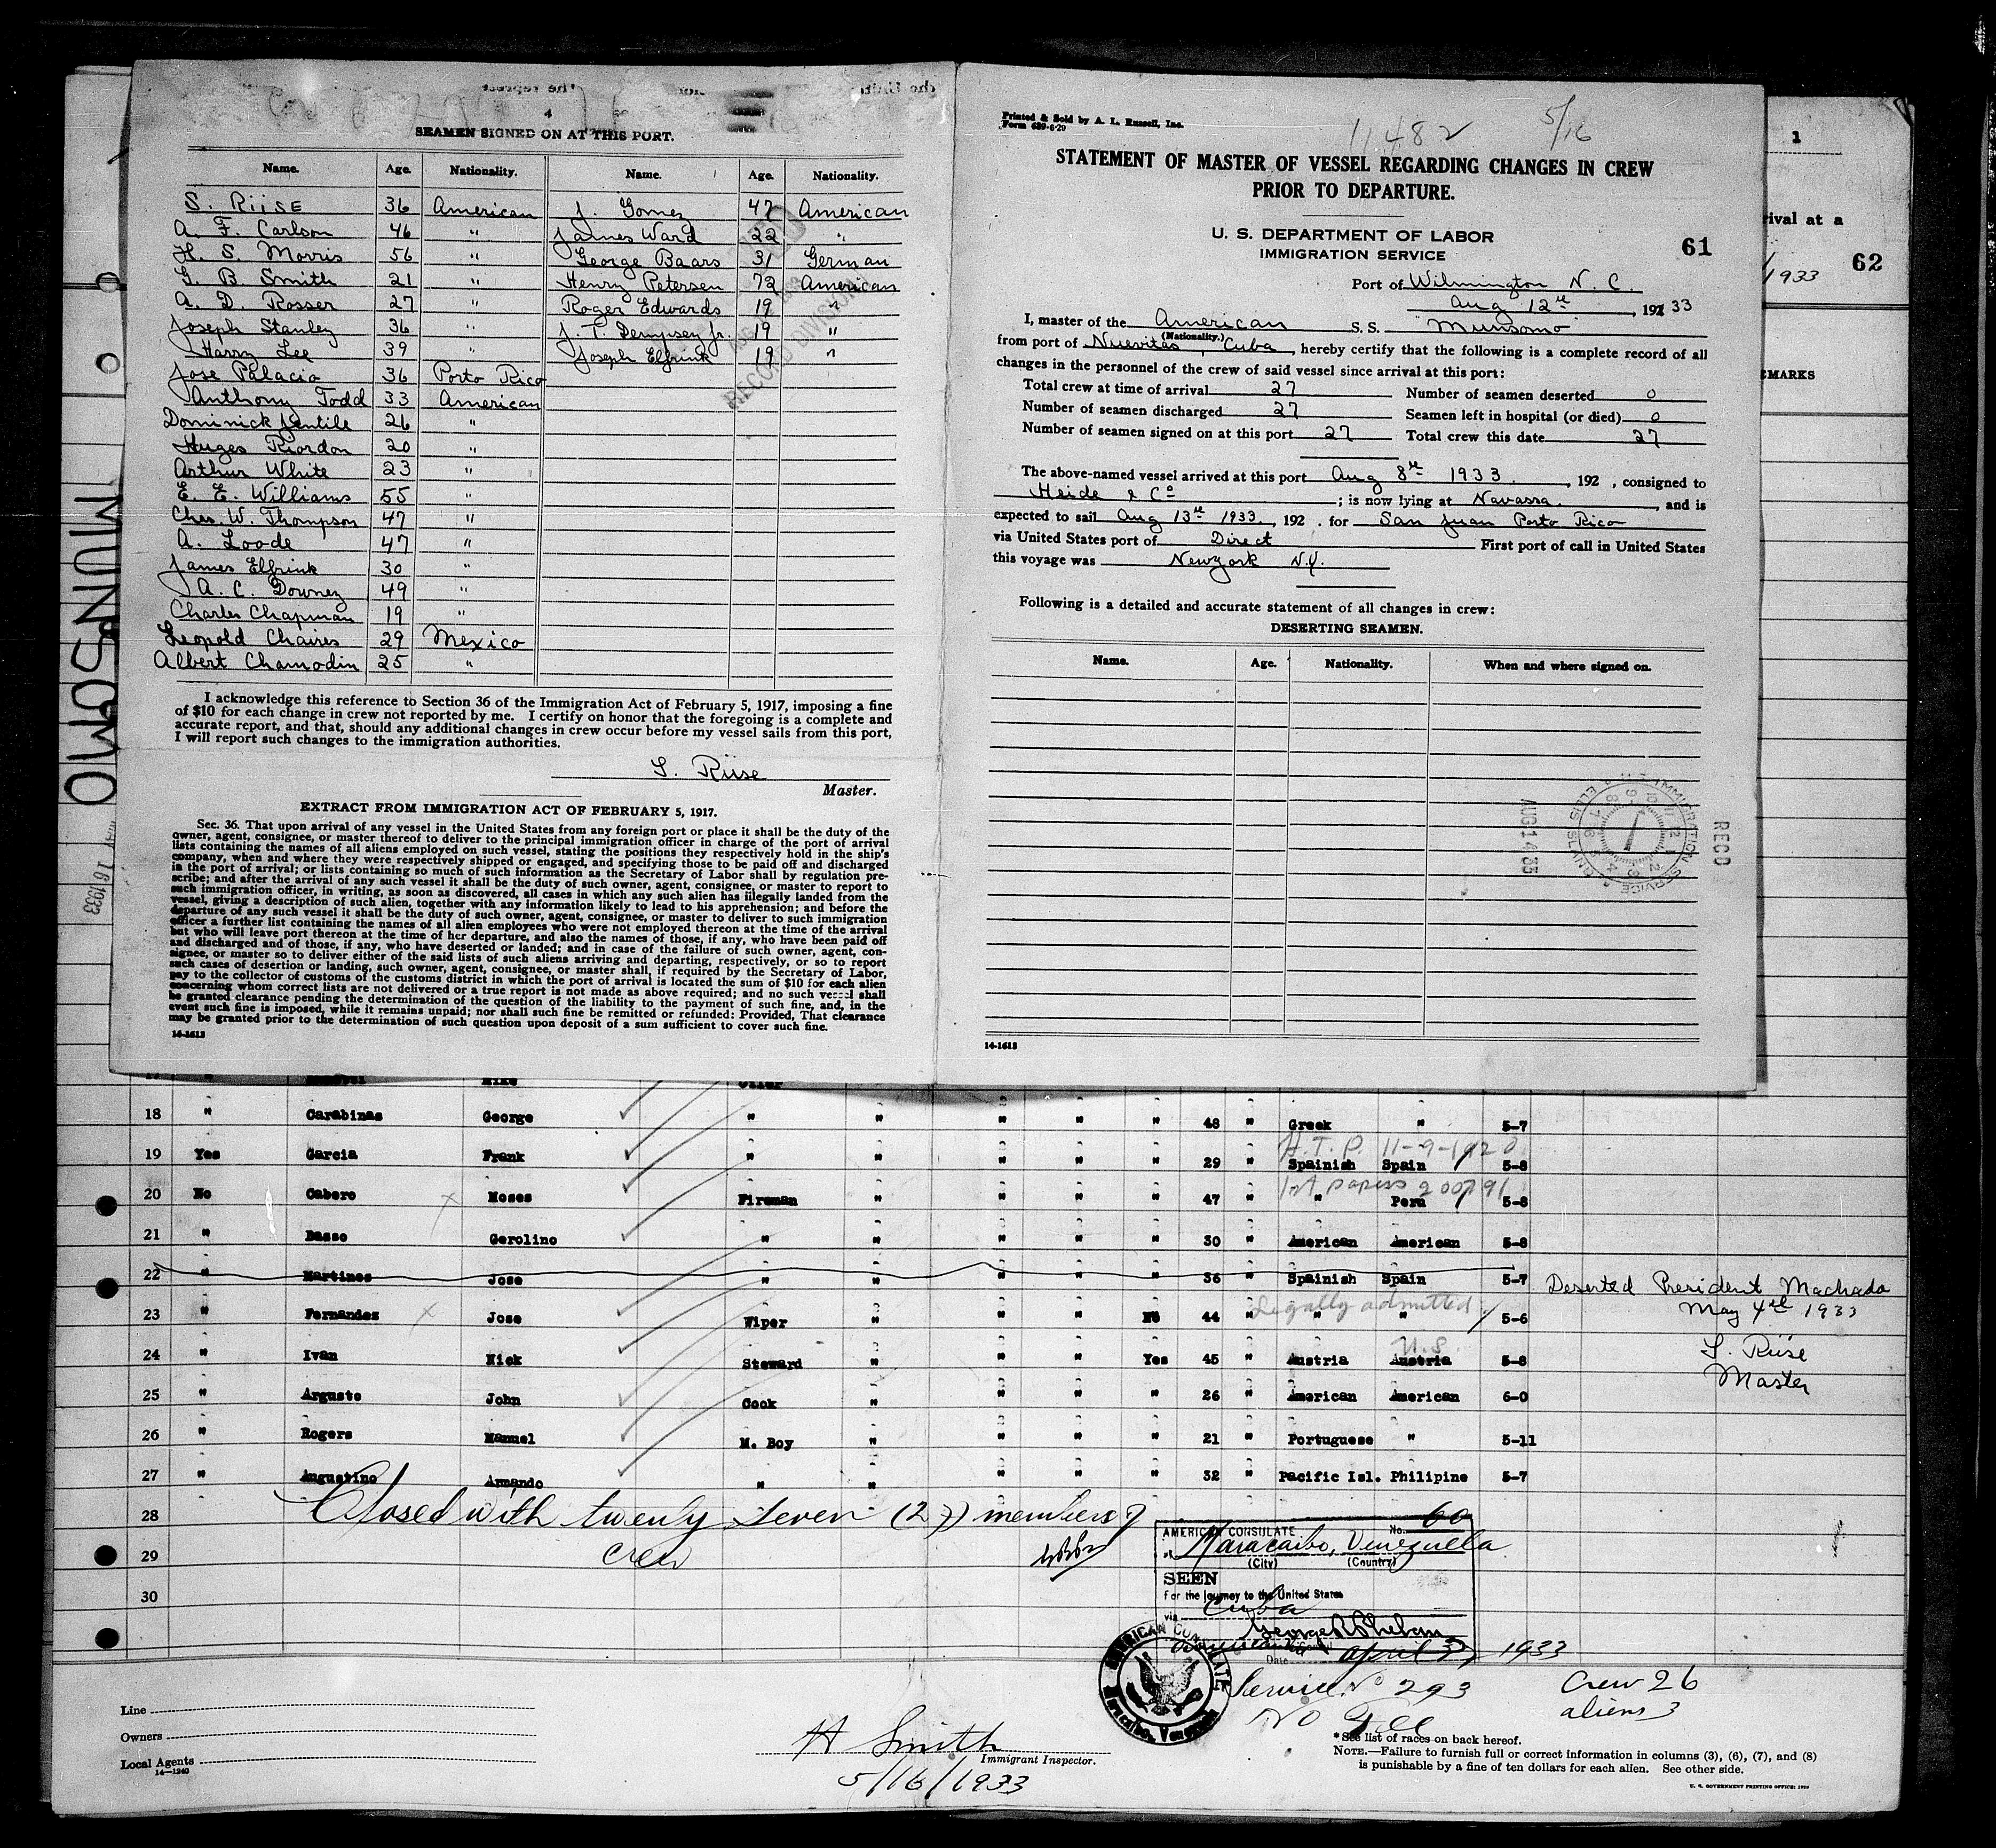 4
SEAMEN SIGNED ON AT THIS PORT.
Name. Age. Nationality. Name. Age. Nationality.
S. RIISE 36 American J. Gomez 47 American
A. F. Carlson 46 " James Ward 22 "
H. S. Morris 56 " George Baars 31 German
G. B. Smith 21 " Henry Petersen 72 American
A. D. Rosser 27 " Roger Edwards 19 "
Joseph Stanley 36 " J. T. Dempsey Jr. 19 "
Harry Lee 39 " Joseph Elfrink 19 "
Jose Palacio 36 Porto Rico
Anthony Todd 33 American
Dominick Jentile 26 "
Huges Riordon 20 "
Arthur White 23 "
E. E. Williams 55 "
Chas. W. Thompson 47 "
A. Loode 47 "
James Elfrink 30 "
A. C. Downey 49 "
Charles Chapman 19 "
Leopold Chaires 29 Mexico
Albert Chamodin 25 "
I acknowledge this reference to Section 36 of the Immigration Act of February 5, 1917, imposing a fine
of $10 for each change in crew not reported by me. I certify on honor that the foregoing is a complete and
accurate report, and that, should any additional changes in crew occur before my vessel sails from this port,
I will report such changes to the immigration authorities.
S. Riise
Master.
EXTRACT FROM IMMIGRATION ACT OF FEBRUARY 5, 1917.
Sec. 36. That upon arrival of any vessel in the United States from any foreign port or place it shall be the duty of the
owner, agent, consignee, or master thereof to deliver to the principal immigration officer in charge of the port of arrival
lists containing the names of all aliens employed on such vessel, stating the positions they respectively hold in the ship's
company, when and where they were respectively shipped or engaged, and specifying those to be paid off and discharged
in the port of arrival; or lists containing so much of such information as the Secretary of Labor shall by regulation pre-
scribe; and after the arrival of any such vessel it shall be the duty of such owner, agent, consignee, or master to report to
such immigration officer, in writing, as soon as discovered, all cases in which any such alien has illegally landed from the
vessel, giving a description of such alien, together with any information likely to lead to his apprehension; and before the
departure of any such vessel it shall be the duty of such owner, agent, consignee, or master to deliver to such immigration
officer a further list containing the names of all alien employees who were not employed thereon at the time of the arrival
but who will leave port thereon at the time of her departure, and also the names of those, if any, who have been paid off
and discharged and of those, if any, who have deserted or landed; and in case of the failure of such owner, agent, con-
signee, or master so to deliver either of the said lists of such aliens arriving and departing, respectively, or so to report
such cases of desertion or landing, such owner, agent, consignee, or master shall, if required by the Secretary of Labor,
pay to the collector of customs of the customs district in which the port of arrival is located the sum of $10 for each alien
concerning whom correct lists are not delivered or a true report is not made as above required; and no such vessel shall
be granted clearance pending the determination of the question of the liability to the payment of such fine, and, in the
event such fine is imposed, while it remains unpaid; nor shall such fine be remitted or refunded: Provided, That clearance
may be granted prior to the determination of such question upon deposit of a sum sufficient to cover such fine.
14-1613
Printed & Sold by A. L. Russell, Inc.
Form 689-6-29
11482 5/16
STATEMENT OF MASTER OF VESSEL REGARDING CHANGES IN CREW
PRIOR TO DEPARTURE.
U. S. DEPARTMENT OF LABOR
IMMIGRATION SERVICE
61
Port of Wilmington N. C.
Aug 12th, 1933
I, master of the American S. S. "Munsomo"
(Nationality.)
from port of Nuevitas, Cuba, hereby certify that the following is a complete record of all
changes in the personnel of the crew of said vessel since arrival at this port:
Total crew at time of arrival 27 Number of seamen deserted 0
Number of seamen discharged 27 Seamen left in hospital (or died) 0
Number of seamen signed on at this port 27 Total crew this date 27
The above-named vessel arrived at this port Aug 8th 1933, 192 , consigned to
Heide & Co ; is now lying at Navassa, and is
expected to sail Aug 13th 1933, 192 . for San Juan Porto Rico
via United States port of Direct First port of call in United States
this voyage was Newyork N.Y.
Following is a detailed and accurate statement of all changes in crew:
DESERTING SEAMEN.
Name. Age. Nationality. When and where signed on.
RECD
AUG 14 33
IMMIGRATION SERVICE
ELLIS ISLAND
14-1613
1
rival at a
1933 62
EMARKS
MUNSOMO
16 1933
Mike Oiler
18 " Carabinas George " " " " " 48 " Greek " 5-7
H.T.P. 11-9-1920
19 Yes Garcia Frank " " " " " 29 " Spainish Spain 5-8
1st papers 200791
20 No Cabero Moses Fireman " " " " 47 " " Peru 5-8
21 " Basso Gerolino " " " " " 30 " American American 5-8
22 " Martines Jose " " " " " 36 " Spainish Spain 5-7 Deserted President Machado
May 4th 1933
Legally admitted
23 " Fernandez Jose Wiper " " " No 44 " " " 5-6
S. Riise
Master
U.S.
24 " Ivan Nick Steward " " " Yes 45 " Austria Austria 5-8
25 " Arguste John Cook " " " " 26 " American American 6-0
26 " Rogers Manuel M. Boy " " " " 21 " Portuguese " 5-11
27 " Augustino Armando " " " " " 32 " Pacific Isl. Philipine 5-7
28 Closed with twenty seven (27) members
29 crew
30
AMERICAN CONSULATE No. 60
Maracaibo, Venezuela
(City) (Country)
SEEN
For the journey to the United States
via Cuba
Date April 1933
AMERICAN CONSULATE
Maracaibo, Venezuela
Service No 293
No Fee
Crew 26
aliens 3
Line
Owners
Local Agents
14-1240
H Smith
Immigrant Inspector.
5/16/1933
* See list of races on back hereof.
NOTE.—Failure to furnish full or correct information in columns (3), (6), (7), and (8)
is punishable by a fine of ten dollars for each alien. See other side.
U. S. GOVERNMENT PRINTING OFFICE: 1929